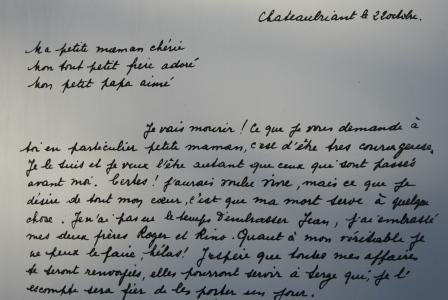 Chateaubriant le 22 octobre.
Ma petite maman chérie
Mon tout petit frère adoré
Mon petit papa aimé
Je vais mourir! Ce que je vous demande à
toi en particulier petite maman, c'est d'être très courageuse.
Je le suis et je veux l'être autant que ceux qui sont passés
avant moi. Certes! j'aurais voulu vivre, mais ce que je
désire de tout mon cœur, c'est que ma mort serve à quelque
chose. Je n'ai pas eu le temps d'embrasser Jean, j'ai embrassé
mes deux frères Roger et Rino. Quant à mon véritable je
ne peux le faire, hélas! J'espère que toutes mes affaires
te seront renvoyées, elles pourront servir à Serge qui, je l'
escompte sera fier de les porter un jour.